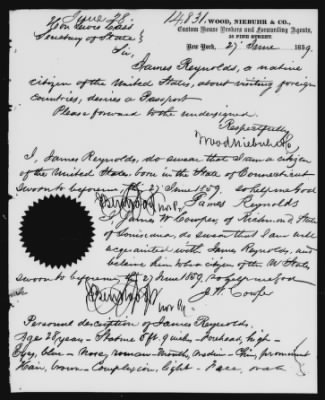 June 28
14,831.
WOOD, NIEBUHR & CO.,
Hon Lewis Cass
Custom House Brokers and Forwarding Agents,
Secretary of State
New York, 27 June 1859.
Sir,
James Reynolds, a native
citizen of the United States, about visiting foreign
countries, desires a Passport
Please forward to the undersigned.
Respectfully
Wood Niebuhr & Co
I, James Reynolds, do swear that I am a citizen
of the United States, born in the State of Connecticut
Sworn to before me, this 27 June 1859. So help me God
James Reynolds
I, James W Cowper, of Richmond State
of do swear that I am well
acquainted with James Reynolds, and
believe him to be a citizen of the U States
Sworn to before me, this 27 June 1859. So help me God
J. W. Cowper
Personal description of James Reynolds.
Age 28 years - Stature 5 ft. 9 inch - Forehead, high -
Eyes, blue - Nose, roman - Mouth, medium - Chin, prominent
Hair, brown - Complexion, light - Face, oval